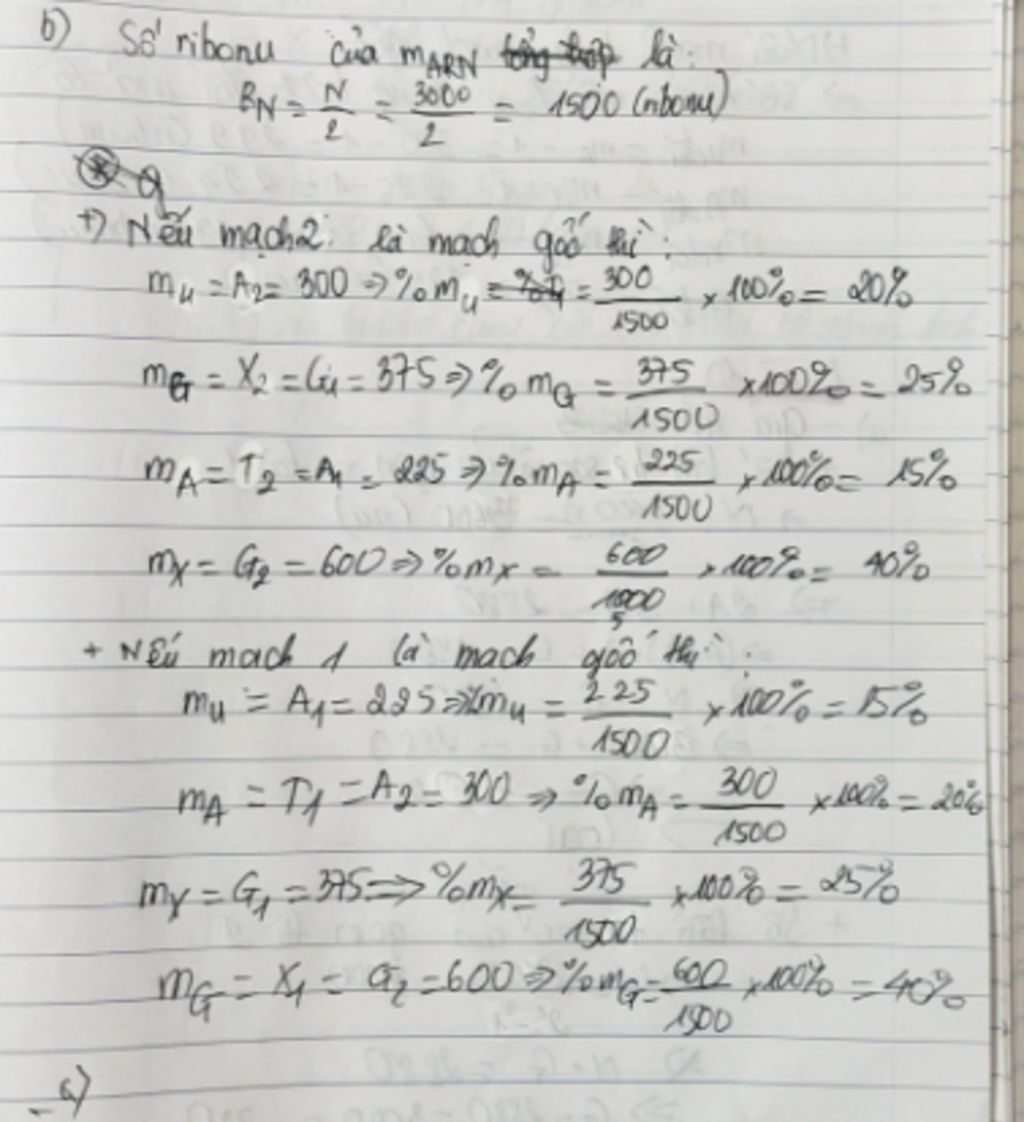 b) Số ribonu của mARN tổng hợp là:
RN = N/2 = 3000/2 = 1500 (ribonu)
+) Nếu mạch 2 là mạch gốc thì:
mU = A2 = 300 => %mU = 300/1500 × 100% = 20%
mG = X2 = G1 = 375 => %mG = 375/1500 × 100% = 25%
mA = T2 = A1 = 225 => %mA = 225/1500 × 100% = 15%
mX = G2 = 600 => %mX = 600/1500 × 100% = 40%
+ Nếu mạch 1 là mạch gốc thì:
mU = A1 = 225 => %mU = 225/1500 × 100% = 15%
mA = T1 = A2 = 300 => %mA = 300/1500 × 100% = 20%
mX = G1 = 375 => %mX = 375/1500 × 100% = 25%
mG = X1 = G2 = 600 => %mG = 600/1500 × 100% = 40%